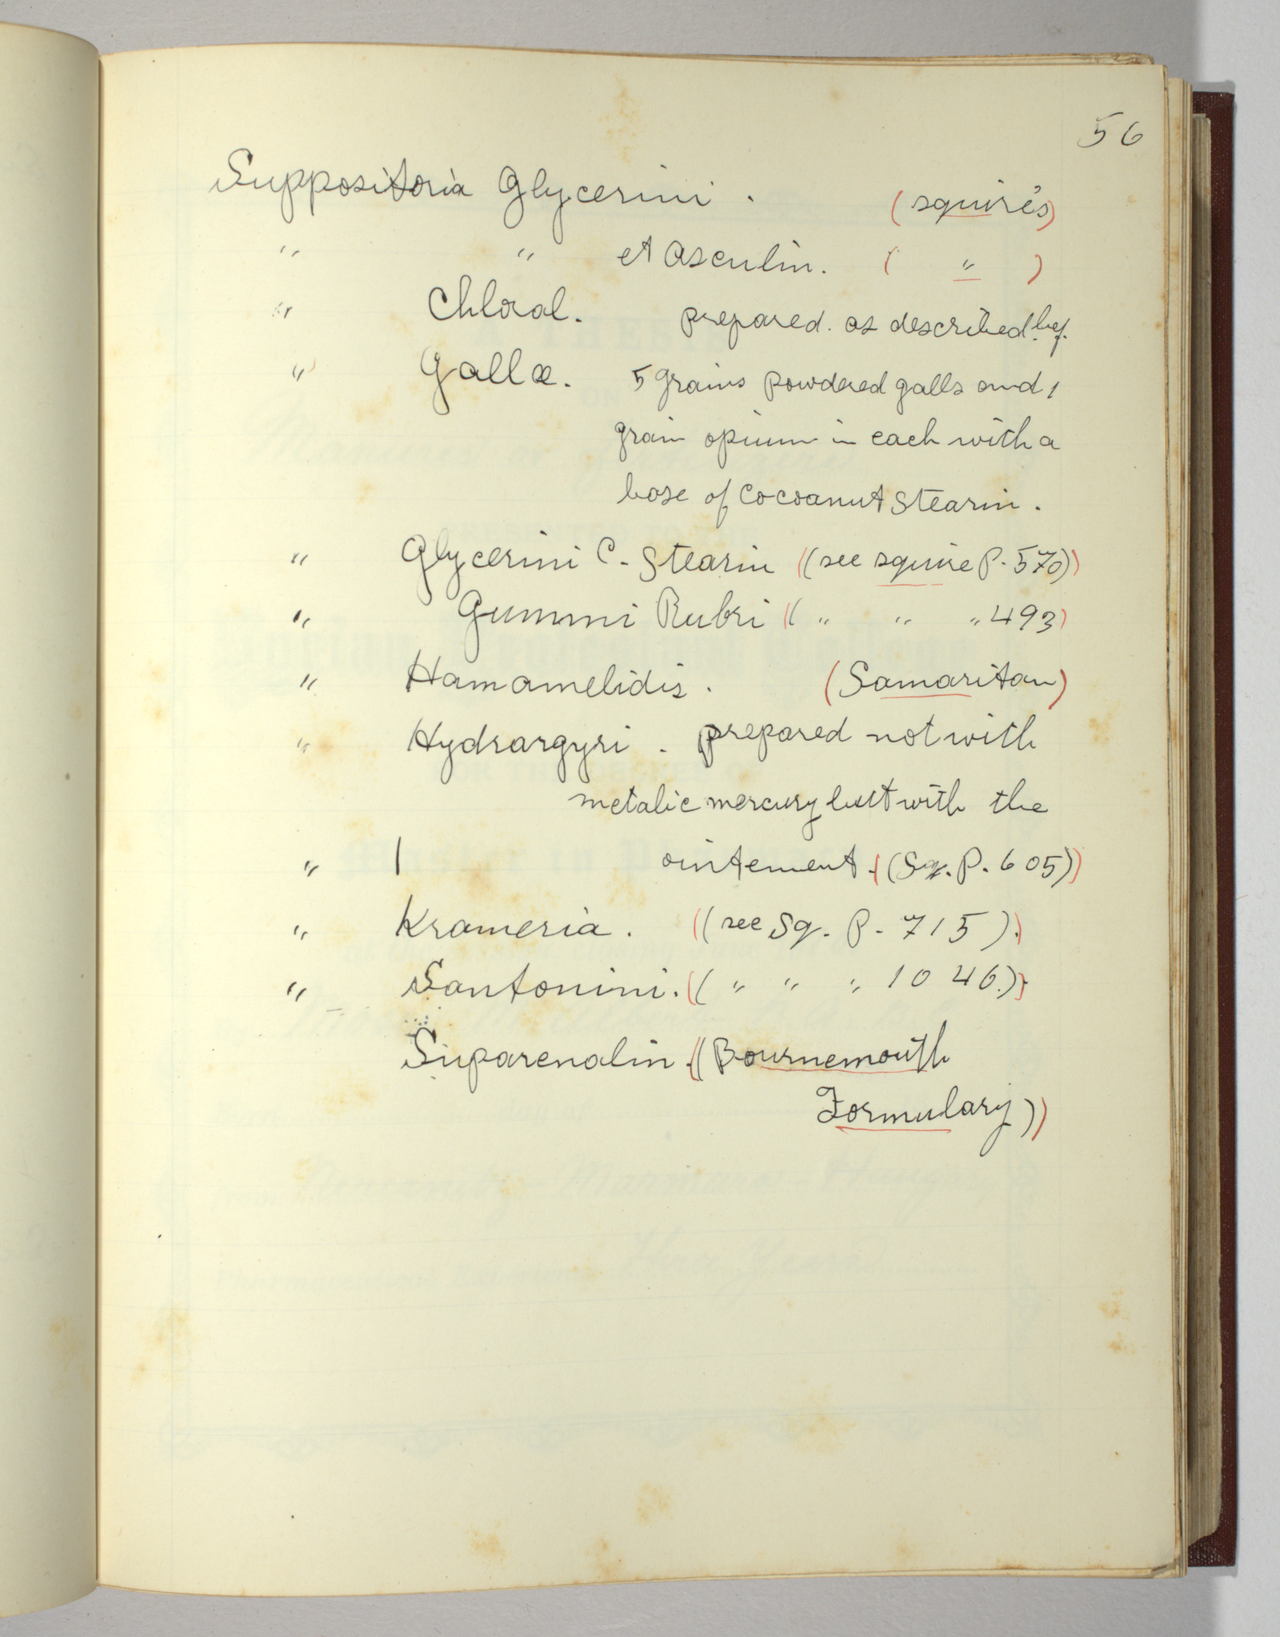 56
Suppositoria Glycerini . (squire's)
" " et Asculin. ( " )
" Chloral. prepared as described by.
" Gallæ. 5 grains powdered galls and 1
grain opium in each with a
base of Cocoanut Stearin .
" Glycerini C. Stearin ((see squire P. 570))
" Gummi Rubri (( " " " 493)
" Hamamelidis . (Samaritan)
" Hydrargyri . prepared not with
metalic mercury but with the
" | ointement . ((Sq. P. 605))
" Krameria . ((see Sq. P. 715 ).)
" Santonini. (( " " " 1046.))
Suparenalin . ((Bournemouth
Formulary))